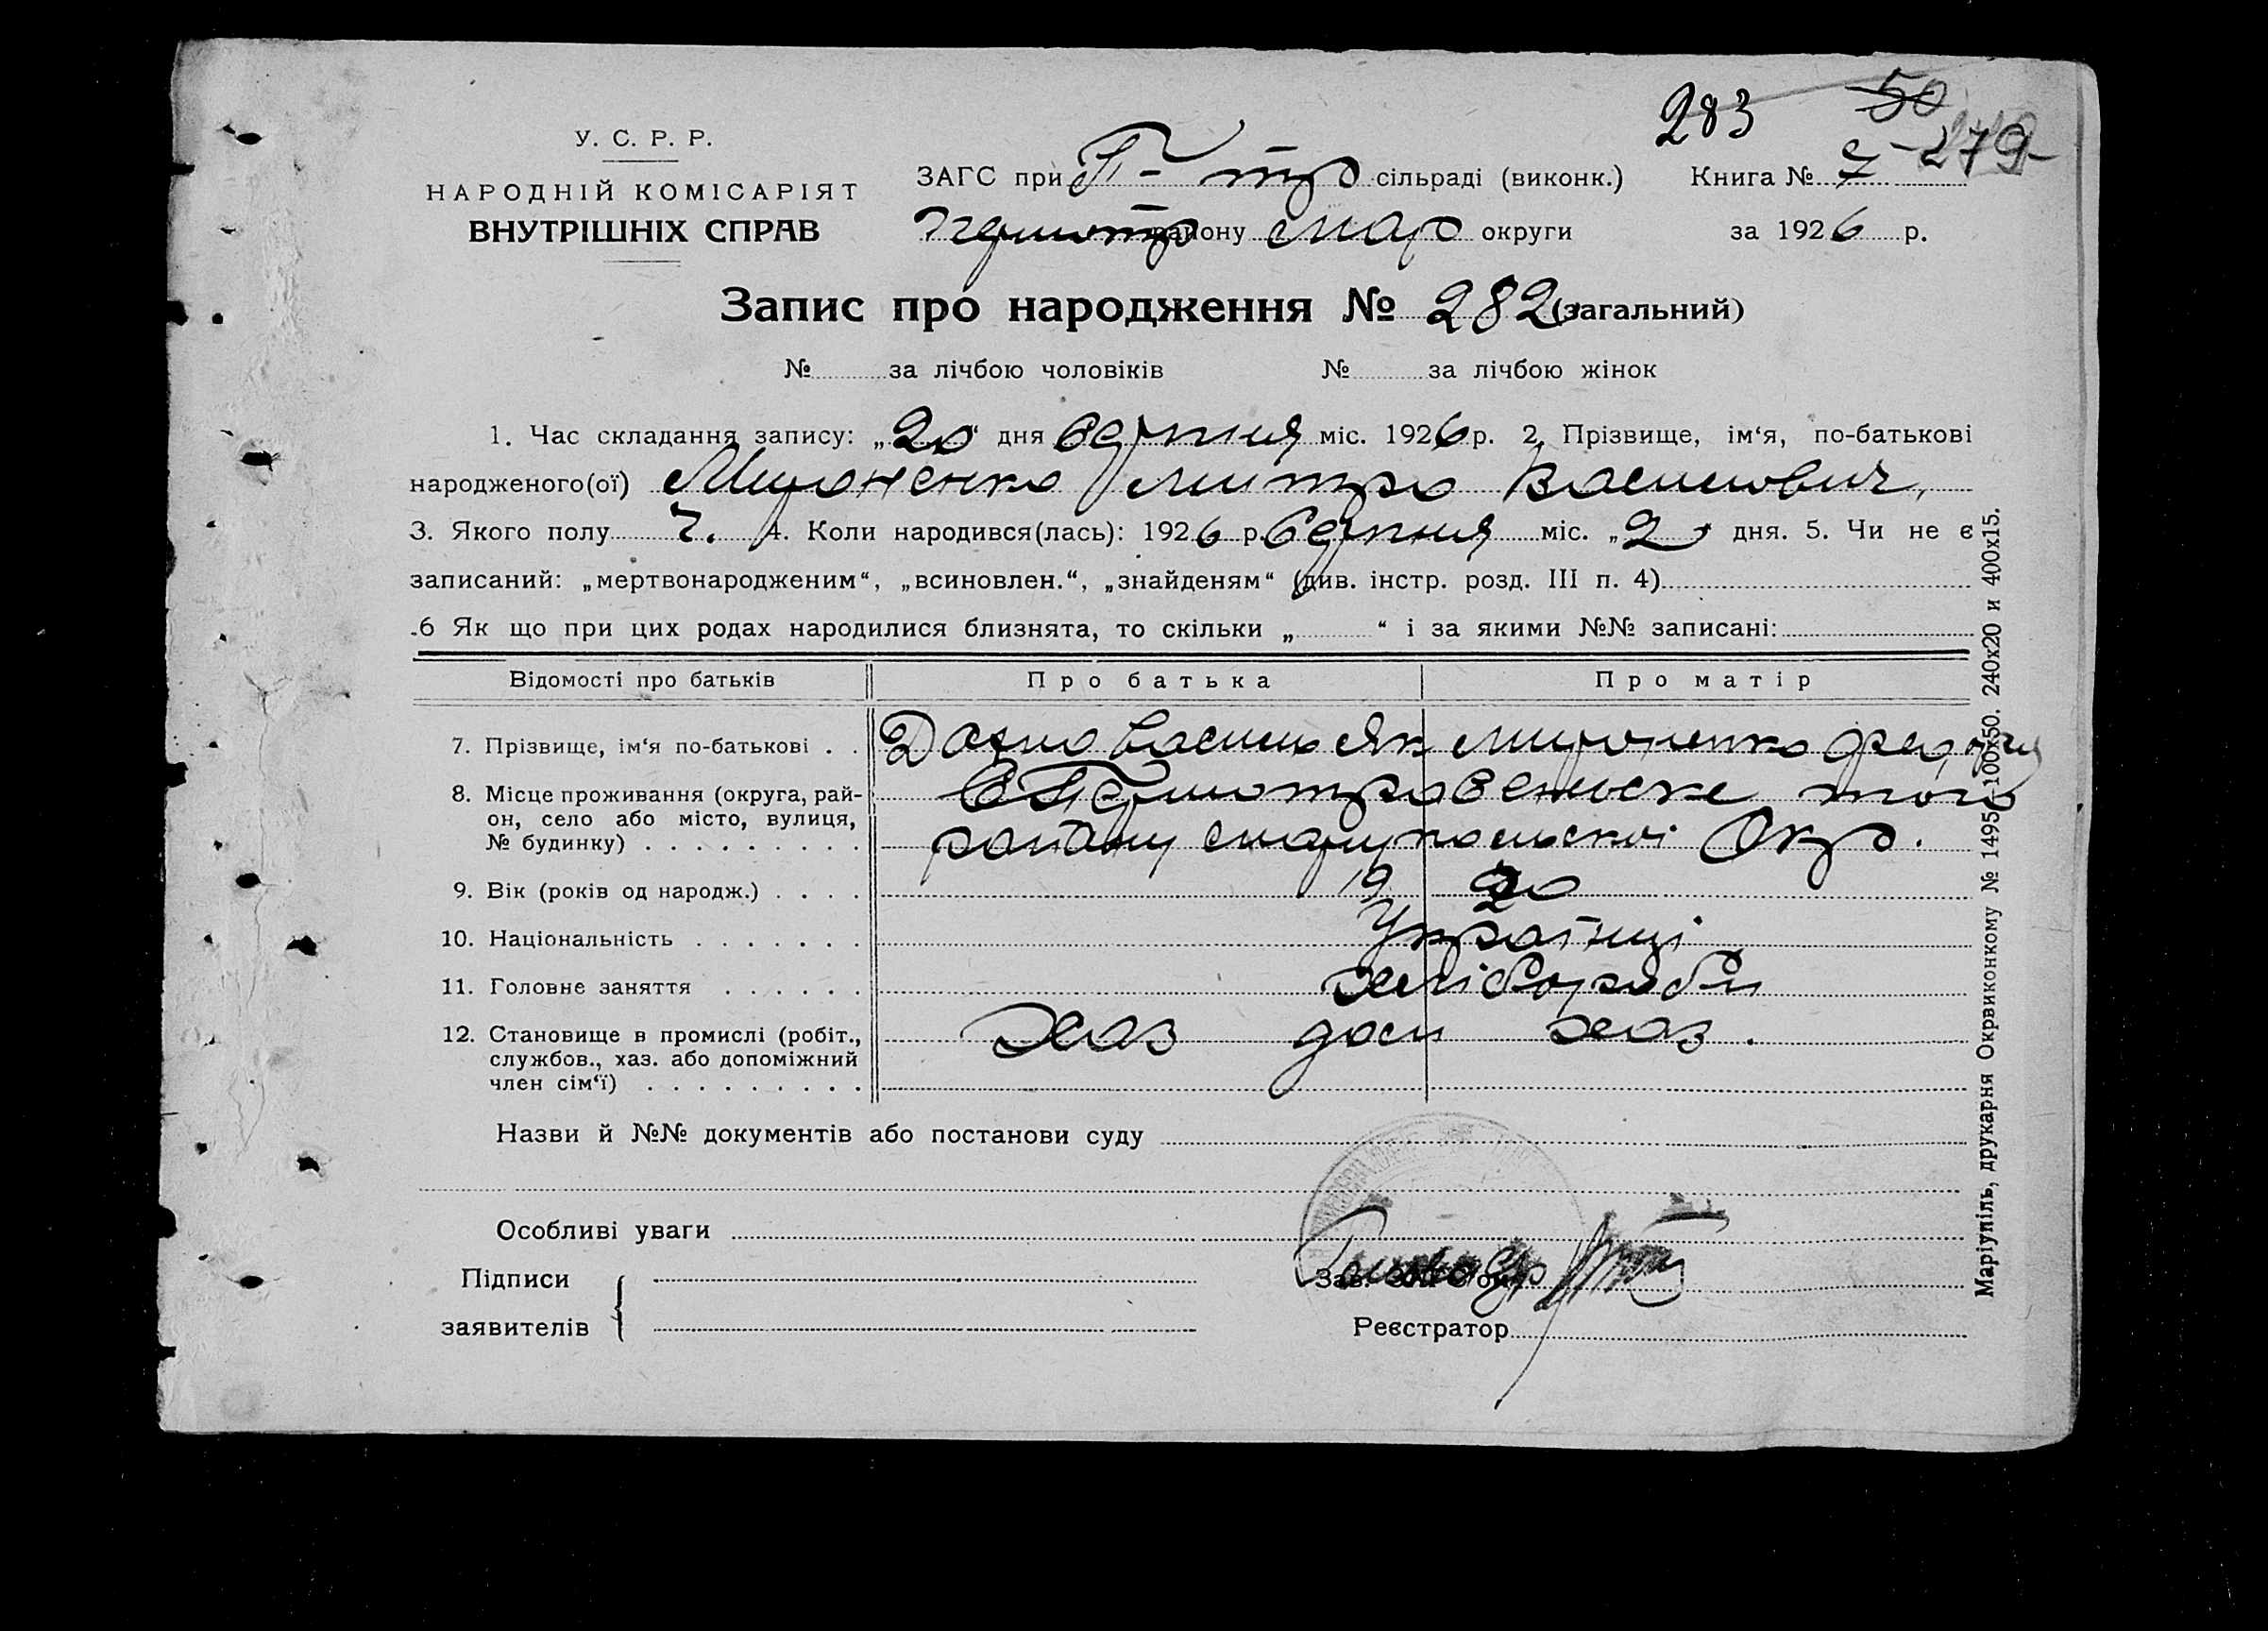 283 50
У. С. Р. Р.
279
НАРОДНІЙ КОМІСАРІЯТ
ВНУТРІШНІХ СПРАВ
ЗАГС при сільраді (виконк.) Книга № 7
району Мар округи за 1926 р.
Запис про народження № 282 (загальний)
№ за лічбою чоловіків № за лічбою жінок
1. Час складання запису: „20“ дня Серпня міс. 1926 р. 2. Прізвище, ім‘я, по-батькові
народженого(ої) Мироненко Дмитро Васильович
3. Якого полу ч. 4. Коли народився(лась): 1926 р. Серпня міс. „2“ дня. 5. Чи не є
записаний: „мертвонародженим“, „всиновлен.“, „знайденям“ (див. інстр. розд. III п. 4)
.6 Як що при цих родах народилися близнята, то скільки „ “ і за якими №№ записані:
Відомості про батьків Про батька Про матір
7. Прізвище, ім‘я по-батькові . . Василь Як Мироненко
8. Місце проживання (округа, рай-
он, село або місто, вулиця,
№ будинку) . . . . . . . . . району Маріупольскоі Окр.
9. Вік (років од народж.) . . . . 19 20
10. Національність . . . . . . . Українці
11. Головне заняття . . . . . . хлібороби
12. Становище в промислі (робіт., Хаз дом хаз.
службов., хаз. або допоміжний
член сім‘ї) . . . . . . . . .
Назви й №№ документів або постанови суду
Особливі уваги
Підписи
Зав.
заявителів
Реєстратор
Маріупіль, друкарня Окрвиконкому № 1495 100х50. 240х20 и 400х15.